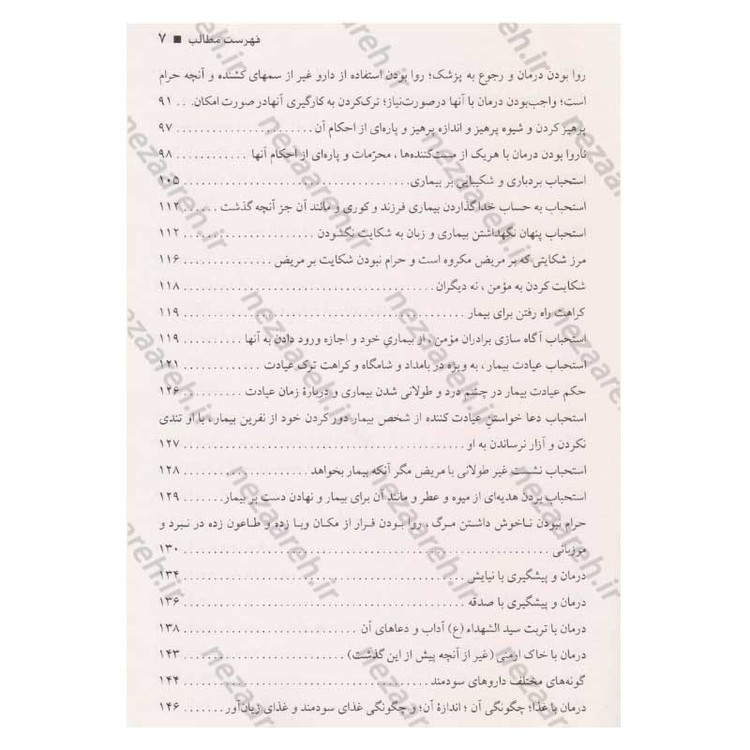 فهرست مطالب ■ ۷
روا بودن درمان و رجوع به پزشک؛ روا بودن استفاده از دارو غیر از سمهای کشنده و آنچه حرام
است؛ واجب‌بودن درمان با آنها درصورت‌نیاز؛ ترک‌کردن به کارگیری آنهادر صورت امکان. . . ۹۱
پرهیز کردن و شیوه پرهیز و اندازه پرهیز و پاره‌ای از احکام آن . . . . . . . . . . . . . . . . . . . . ۹۷
ناروا بودن درمان با هریک از مست‌کننده‌ها ، محرّمات و پاره‌ای از احکام آنها . . . . . . . . . . . ۹۸
استحباب بردباری و شکیبایی بر بیماری . . . . . . . . . . . . . . . . . . . . . . . . . . . . . . . . . ۱۰۵
استحباب به حساب خداگذاردن بیماری فرزند و کوری و مانند آن جز آنچه گذشت . . . . . . ۱۱۲
استحباب پنهان نگهداشتن بیماری و زبان به شکایت نگشودن . . . . . . . . . . . . . . . . . . ۱۱۲
مرز شکایتی که بر مریض مکروه است و حرام نبودن شکایت بر مریض . . . . . . . . . . . . . ۱۱۶
شکایت کردن به مؤمن ، نه دیگران . . . . . . . . . . . . . . . . . . . . . . . . . . . . . . . . . . . . ۱۱۸
کراهت راه رفتن برای بیمار . . . . . . . . . . . . . . . . . . . . . . . . . . . . . . . . . . . . . . . . . ۱۱۹
استحباب آگاه سازی برادران مؤمن ، از بیماریِ خود و اجازه ورود دادن به آنها . . . . . . . . . . ۱۱۹
استحباب عیادت بیمار ، به ویژه در بامداد و شامگاه و کراهت ترک عیادت . . . . . . . . . . . . ۱۲۱
حکم عیادت بیمار در چشم درد و طولانی شدن بیماری و دربارهٔ زمان عیادت . . . . . . . . . ۱۲۶
استحباب دعا خواستن عیادت کننده از شخص بیمار دور کردن خود از نفرین بیمار ، با او تندی
نکردن و آزار نرساندن به او . . . . . . . . . . . . . . . . . . . . . . . . . . . . . . . . . . . . . . . . . ۱۲۷
استحباب نشست غیر طولانی با مریض مگر آنکه بیمار بخواهد . . . . . . . . . . . . . . . . . . ۱۲۸
استحباب بردن هدیه‌ای از میوه و عطر و مانند آن برای بیمار و نهادن دست بر بیمار . . . . . . ۱۲۹
حرام نبودن ناخوش داشتن مرگ ، روا بودن فرار از مکان وبا زده و طاعون زده در نبرد و
مرزبانی . . . . . . . . . . . . . . . . . . . . . . . . . . . . . . . . . . . . . . . . . . . . . . . . . . . . . ۱۳۰
درمان و پیشگیری با نیایش . . . . . . . . . . . . . . . . . . . . . . . . . . . . . . . . . . . . . . . . ۱۳۴
درمان و پیشگیری با صدقه . . . . . . . . . . . . . . . . . . . . . . . . . . . . . . . . . . . . . . . . ۱۳۶
درمان با تربت سید الشهداء (ع) آداب و دعاهای آن . . . . . . . . . . . . . . . . . . . . . . . . . ۱۳۸
درمان با خاک ارمنی (غیر از آنچه پیش از این گذشت) . . . . . . . . . . . . . . . . . . . . . . . ۱۴۳
گونه‌های مختلف داروهای سودمند . . . . . . . . . . . . . . . . . . . . . . . . . . . . . . . . . . . . ۱۴۴
درمان با غذا؛ چگونگی آن ؛ اندازهٔ آن؛ و چگونگی غذای سودمند و غذای زیان‌آور . . . . . . . ۱۴۶
nezaareh.ir